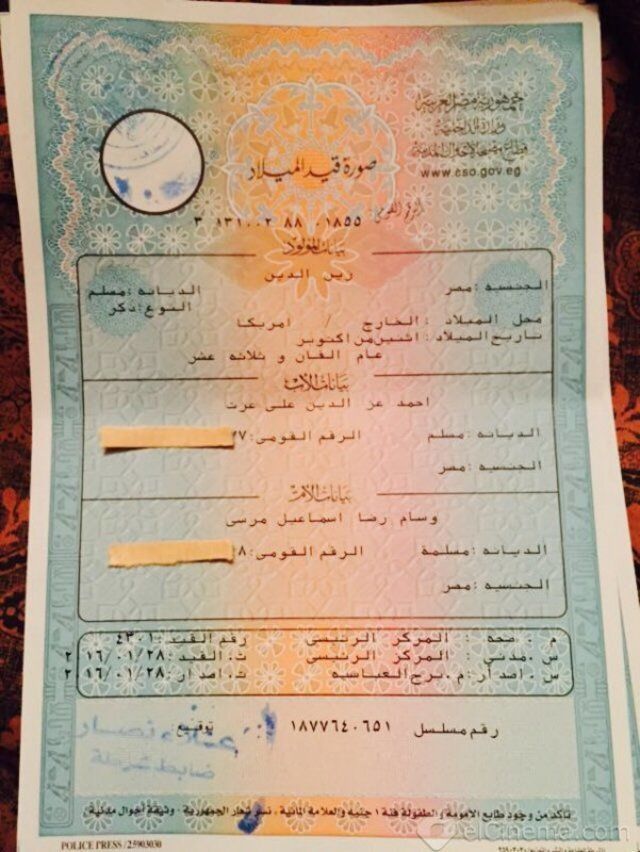 جمهورية مصر العربية
وزارة الداخلية
قطاع مصلحة الأحوال المدنية
www.cso.gov.eg
صورة قيد الميلاد
الرقم القومى:
٣ ١٣١٠٠٢ ٨٨ ٠١٨٥٥
بيانات المولود
زين الدين
الجنسيه :مصر الديانه :مسلم
النوع :ذكر
محل الميلاد :الخارج / امريكا
تاريخ الميلاد :اثنين من اكتوبر
عام الفان و ثلاثه عشر
بيانات الأب
احمد عز الدين على عزت
الديانه :مسلم الرقم القومى:٧
الجنسيه :مصر
بيانات الأم
وسام رضا اسماعيل مرسى
الديانه :مسلمة الرقم القومى:٨
الجنسيه :مصر
م . صحه : المركز الرئيسى رقم القيد :٤٣٠١
س .مدنى : المركز الرئيسى ت. القيد :٢٠١٦/٠١/٢٨
س . اصدار :م.برج العباسيه ت. اصدار :٢٠١٦/٠١/٢٨
رقم مسلسل ١٨٧٧٦٤٠٦٥١ توقيع :
تأكد من وجود طابع الأمومة والطفولة فئة ١ جنيه والعلامة المائية ، نسر شعار الجمهورية - وثيقة أحوال مدنية
POLICE PRESS / 25903030
elCinema.com